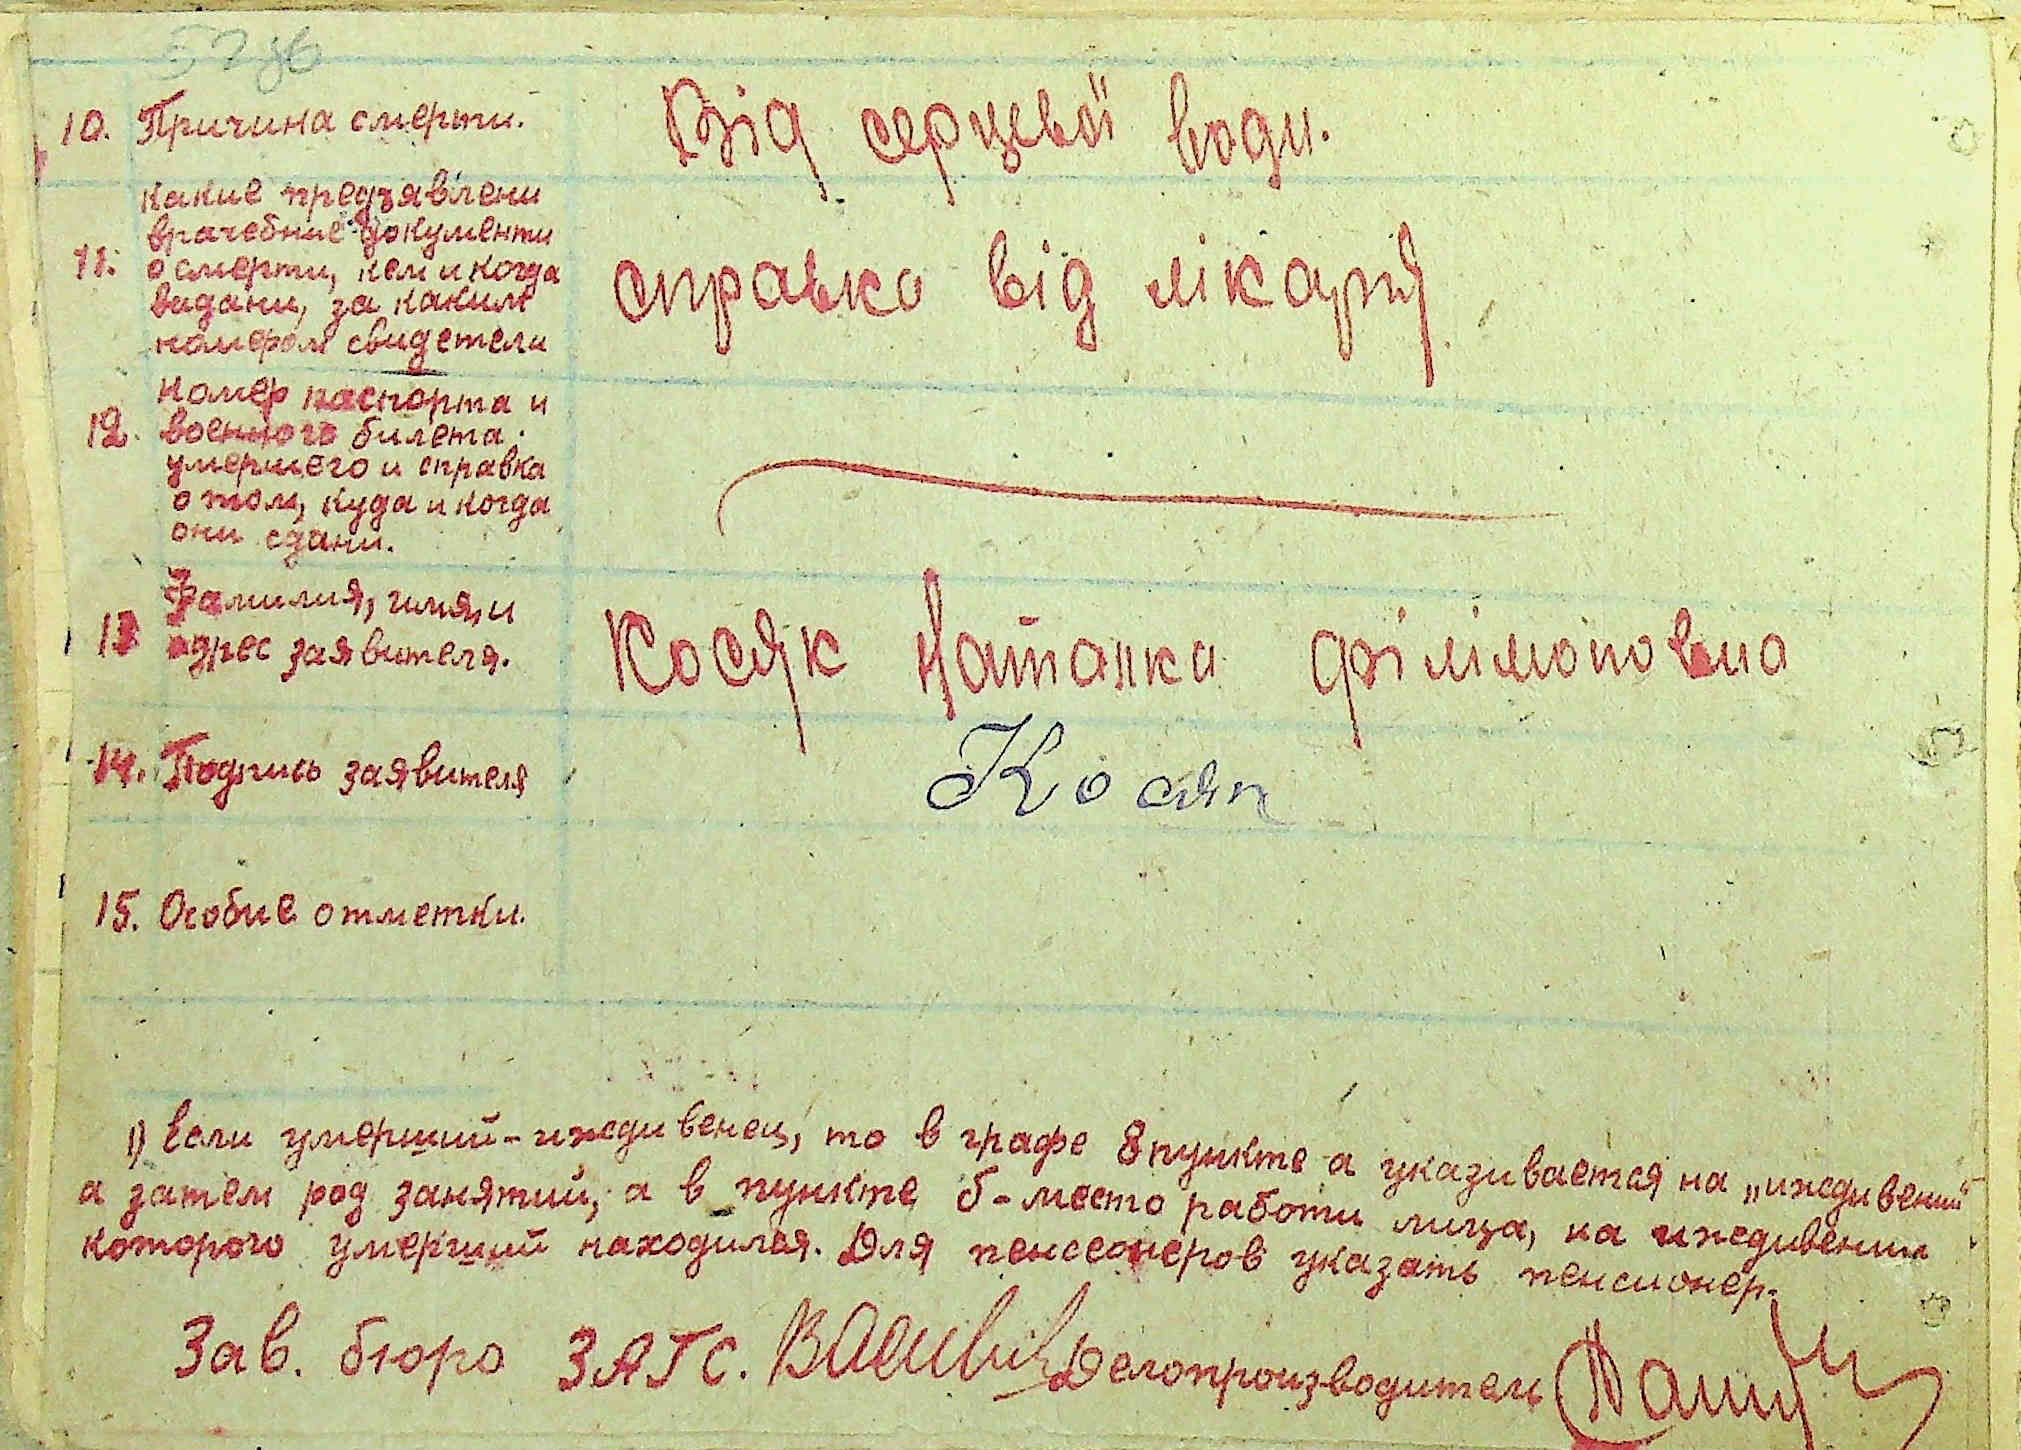 10. Причина смерти.
Від серцевої води.
11. какие предъявлени
врачебние документи
о смерти, кем и когда
видани, за каким
номером свидетели
справка від лікаря
12. номер паспорта и
военного билета
умершего и справка
о том, куда и когда
они сдани.
13 Фамилия, имя, и
адрес заявителя.
Косяк Наталка Філімоновна
14. Подпись заявителя
Косяк
15. Особие отметки.
1) Если умерший-иждивенец, то в графе 8 пункте а указивается на „иждивении"
а затем род занятий, а в пункте б-место работи лица, на иждивении
которого умерший находился. Для пенсеонеров указать пенсионер.
Зав. бюро ЗАГС. Делопроизводитель